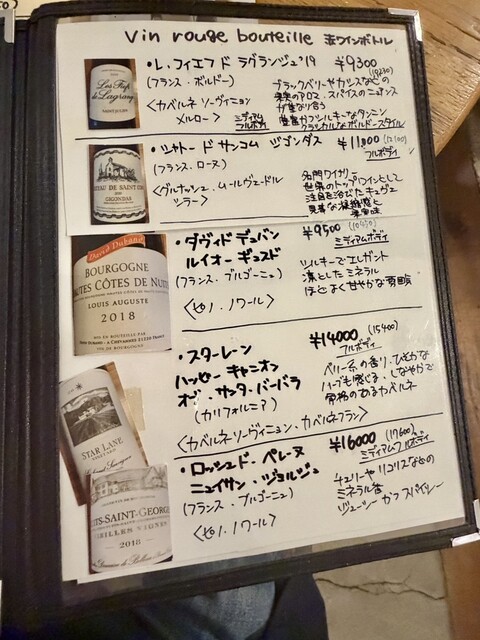 Vin rouge bouteille 赤ワインボトル
・レ.フィエフ ド ラグランジュ'19 ¥9300
(フランス.ボルドー) (10230)
<カベルネ ソーヴィニョン
メルロー> ミディアム
フルボディ
ブラックベリーやカシスなどの
果実のアロマ.スパイスのニュアンス
が重なり合う
豊富かつシルキーなタンニン
クラシカルなボルドースタイル
Les Fiefs
de Lagrange
・シャトー ド サンコム ジゴンダス ¥11000 (12100)
(フランス.ローヌ) フルボディ
<グルナッシュ.ムールヴェードル
シラー>
名門ワイナリー
世界のトップワインとして
注目を浴びたキュヴェ
GIGONDAS
・ダヴィド デュバン ¥9500 (10450)
ルイオーギュスド ミディアムボディ
(フランス.ブルゴーニュ)
<ピノ.ノワール>
シルキーでエレガント
凛としたミネラル
ほどよく甘やかな雰囲気
David Duband
BOURGOGNE
HAUTES CÔTES DE NUITS
LOUIS AUGUSTE
2018
MIS EN BOUTEILLE PAR
・スターレーン ¥14000 (15400)
ハッピーキャニオン フルボディ
オブ.サンタ.バーバラ
(カリフォルニア)
<カベルネソーヴィニョン.カベルネフラン>
ベリー系の香り.ひそかな
ハーブも感じる.しなやかで
骨格のあるカベルネ
STAR LANE
VINEYARD
・ロッシュド.ペレーヌ ¥16000 (17600)
ニュイサン.ジョルジュ ミディアムフルボディ
(フランス.ブルゴーニュ)
<ピノ.ノワール>
チェリーやリコリスなどの
ミネラル香
ジューシーかつスパイシー
NUITS-SAINT-GEORGES
VIEILLES VIGNES
2018